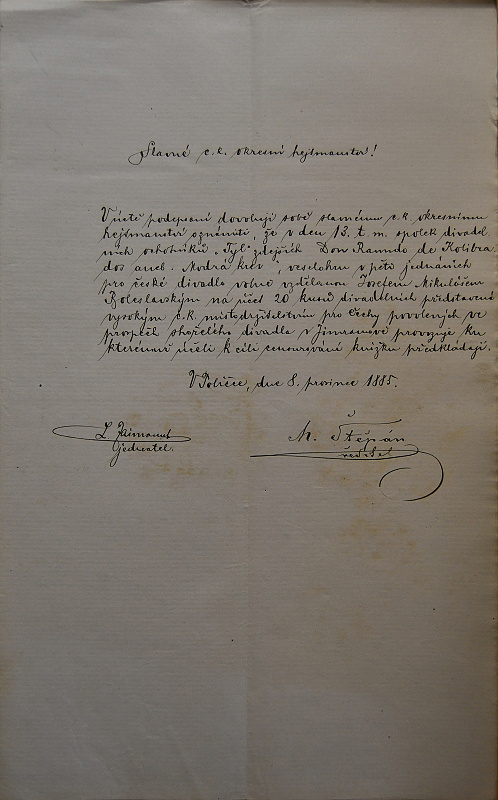 Slavné c.k. okresní hejtmanství!
V úctě podepsaní dovolují sobě slavnému c.k. okresnímu
hejtmanství oznámiti že v den 13. t. m. spolek divadel
ních ochotníků „Tyl" zdejších Don Ramudo de Kolibra
dos aneb: Modrá krev", veselohru v pěti jednáních
pro české divadlo volně vzdělanou Josefem Mikulášem
Boleslavským na účet 20 kusů divadelních představení
vysokým c.k. místodržitelstvím pro Čechy povolených ve
prospěch shořelého divadla v Jimramově provozuje ku
kterémuž účeli k cíli censurování knížku předkládají.
V Poličce, dne 8. prosince 1885.
L.
M. Štěpán
jednatel.
ředitel